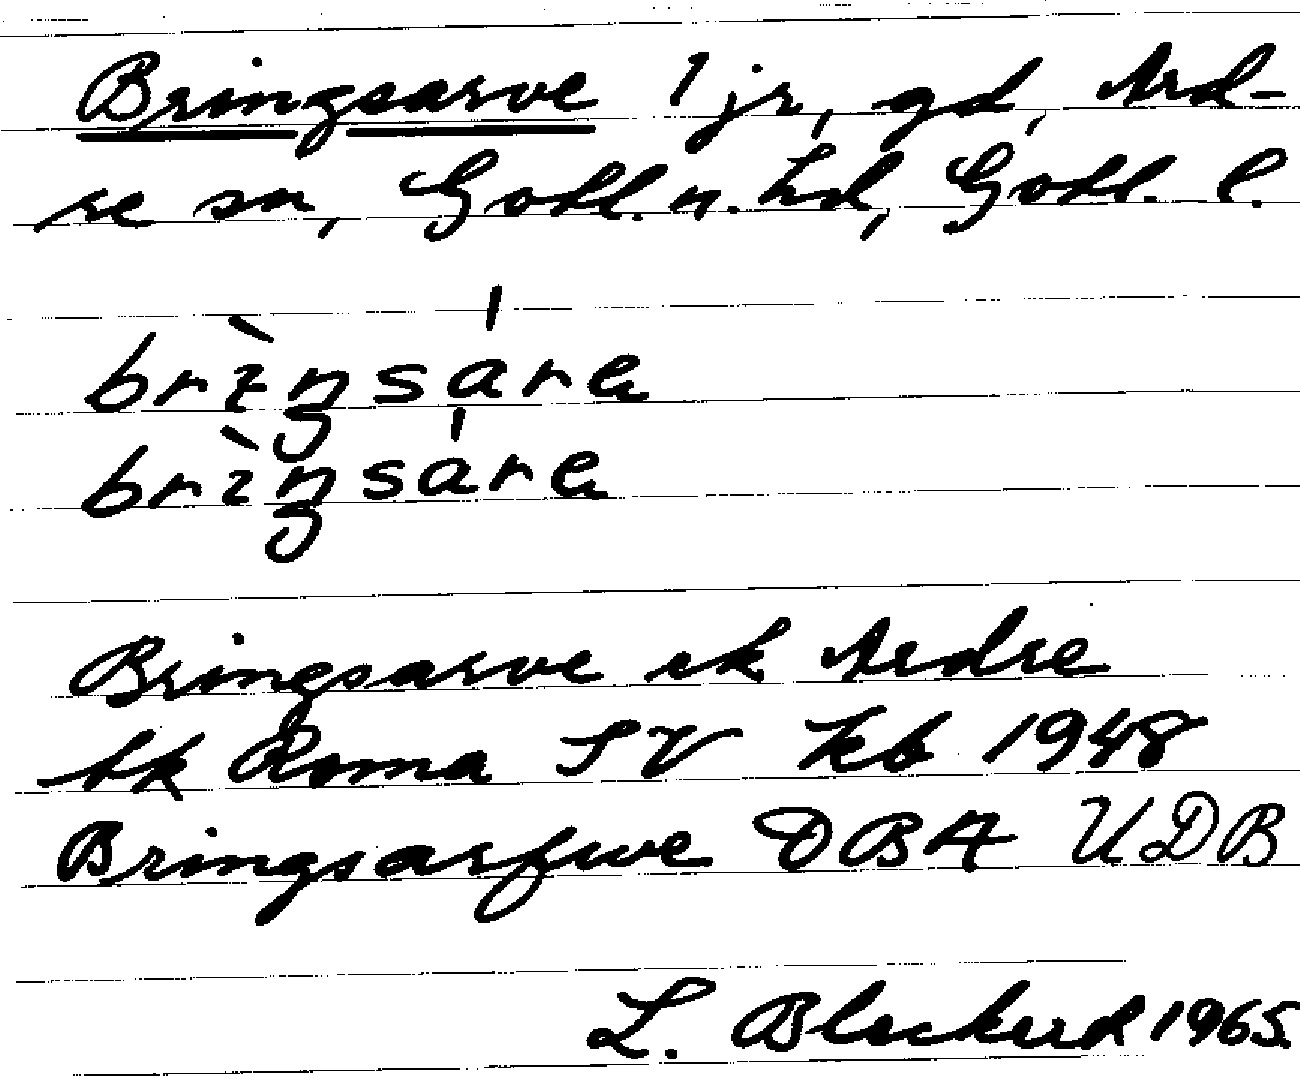 Bringsarve 1 jr, gd, Ard-
re sn, Gotl. n. hd, Gotl. l.
brìŋsárɐ
brìŋsárɐ
Bringsarve ek Ardre
bk Roma SV Kb 1948
Bringsarfwe DBA UDB
L. Bleckerd 1965